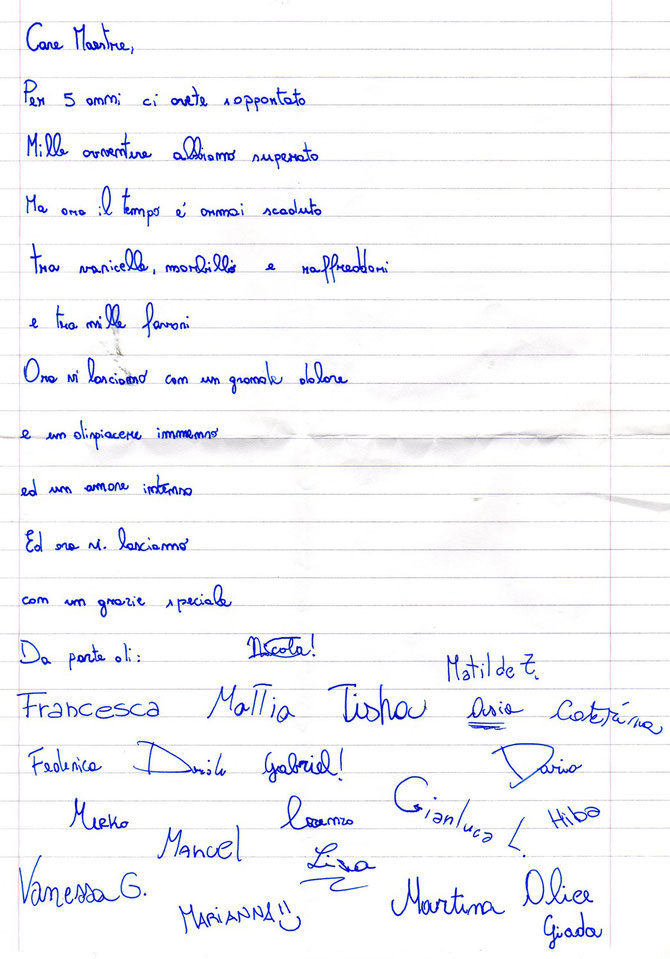 Care Maestre,
Per 5 anni ci avete sopportato
Mille avventure abbiamo superato
Ma ora il tempo é ormai scaduto
tra varicelle, morbillo e raffreddori
e tra mille favori
Ora vi lasciamo con un grande dolore
e un dispiacere immenso
ed un amore intenso
Ed ora vi lasciamo
con un grazie speciale
Da parte di: Nicola!
Matilde Z.
Francesca Mattia Tisha Asia Caterina
Federica Danilo Gabriel! Dario
Mirko Manuel Lorenzo Gianluca L. Hiba
Vanessa G. Lisa Martina Alice
MARIANNA Giada